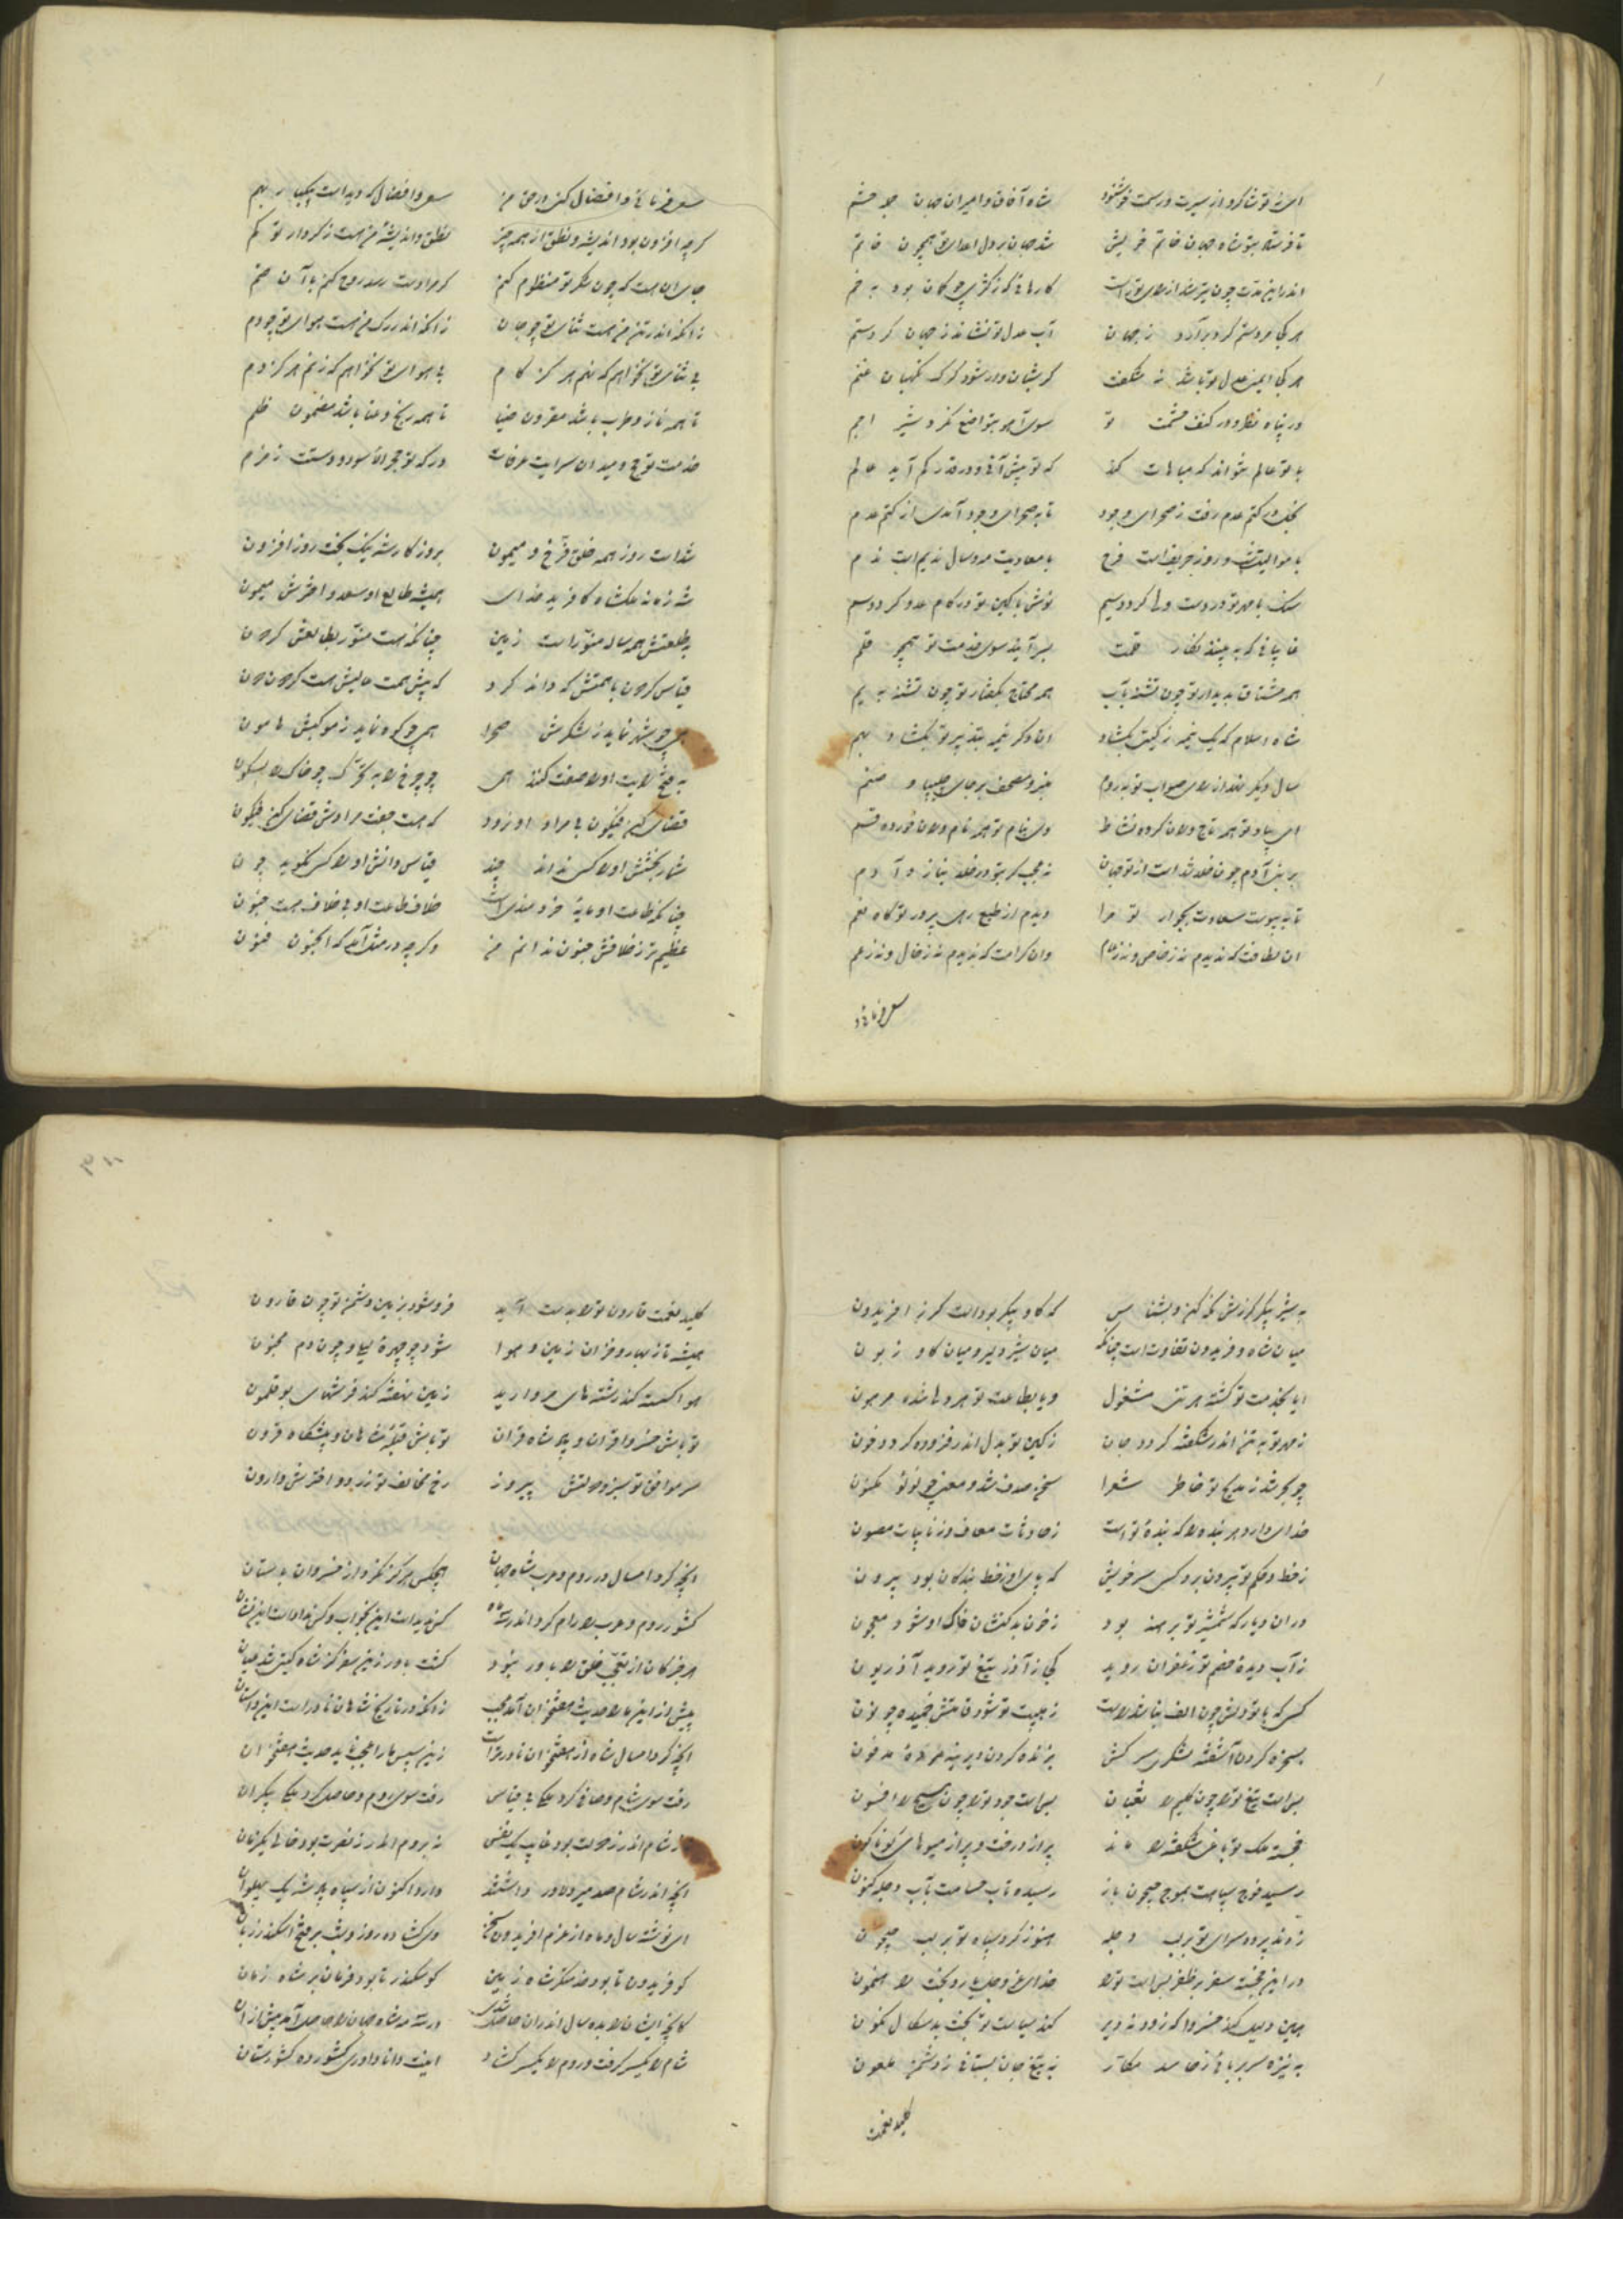 ای ز تو شاکر و از سیرت و رسمت خوشنود شاه آفاق و امیران جهان و حشم
تا فرستاد بتو شاه جهان خاتم خویش شد جهان بر دل اعدای تو همچون خاتم
اندر این مدت چون تیر شد از رای تو راست کارهائی که ز کژی چو کمان بود بخم
هر کجا مردستم کرد برآرد ز جهان آب عدل تو نشاند ز جهان کرد ستم
هر کجا ایمنی عدل تو باشد نه شگفت گر شبان دور شود گرگ نگهبان غنم
در پناه نظر و در کنف حشمت تو سوی آهو بتواضع نگرد شیر اجم
با تو عالم نتواند که مباهات کند که تو بیش آئی و در قدر کم آید عالم
بخل در کتم عدم رفت ز صحرای وجود تا به صحرای وجود آمدی از کتم عدم
با موالیت شب و روز حریف است فرح با معادیت مه و سال ندیم است ندم
سنگ با مهر تو در دست ولی گردد سیم نوش با کین تو در کام عدو گردد سم
غایبانی که به بینند نگار قلمت بسر آیند سوی خدمت تو همچو قلم
همه مشتاق بدیدار تو چون تشنه بآب همه محتاج بگفتار تو چون تشنه به یم
شاه اسلام که یک نیمه ز گیتی بگشاد آن دگر نیمه بتدبیر تو بگشاد بهم
سال دیگر نهد از رای صواب تو بروم منبر و مصحف بر جای چلیپا و صنم
ای بیاد تو همه تاج وران کرده نشاط وی بنام تو همه نام وران خورده قسم
بر بنی آدم چون خلد شد است از تو جهان نه عجب گر بتو در خلد بنازد آدم
تا به پیوست سعادت بجوار تو مرا دیدم از طبع رهی پرور تو گاه نعم
آن لطافت که ندیدم نه ز خاص و نه ز عام وان کرامت که ندیدم نه ز خال و نه ز عم
سعی فرمائی و
سعی فرمائی و افضال کنی در حق من سعی و افضال که دیداست چنین بهم
گرچه افزون بود اندیشه و نطق از همه چیز نطق و اندیشه من هست ز کردار تو کم
جای آن هست که چون شکر تو منظوم کنم گر مرا دست رسد روح کنم با آن ضم
زانکه اندر تن من هست ثنای تو چو جان زانکه اندر رگ من هست هوای تو چو دم
بی ثنای تو نخواهم که نهم هرگز گام بی هوای تو نخواهم که زنم هرگز دم
تا همه ناز و طرب باشد مقرون ضیا تا همه رنج و عنا باشد مضمون ظلم
خدمت تو حج و میدان سرایت عرفات درگه تو حجر الاسود و دستت زمزم
شداست روز همه خلق فرخ و میمون بروزگار شه نیک بخت روز افزون
شه زمانه ملکشاه کافرید خدای همیشه طالع او سعد و اخترش میمون
بطلعتش همه ساله منور است زمین چنانکه هست منور بطالعش گردون
قیاس گردون با همتش که داند کرد که پیش همت عالیش هست گردون دون
همی چو شهر نماید ز لشکرش صحرا همی چو کوه نماید ز موکبش هامون
به فتح رایت او را صفت کنند همی چو چرخ را به تحرک چو خاک را بسکون
قضای کن فیکون با مراد او زود که هست جفت مرادش قضای کن فیکون
شمار بخشش او را کس نداند چند قیاس دانش او را کس نگوید چون
چنانکه طاعت او مایه خردمندی است خلاف طاعت او بی خلاف هست جنون
عظیم‌تر ز خلافش جنون ندانم من و گرچه در مثل آمد که الجنون فنون
به شیر پیکر گرزش نگه کن و بشناس که گاو پیکر بوداست گرز افریدون
میان شاه و فریدون تفاوت است چنانکه میان شیر دلیر و میان گاو زبون
ایا بخدمت تو گشته هر تنی مشغول و یا بطاعت تو هر دلی شده مرهون
ز مهر تو به تن اندر شکفته گردد جان ز کین تو بدل اندر فزوده گردد خون
چو بحر شد ز مدیح تو خاطر شعرا سخن صدف شد و معنی چو لؤلؤ مکنون
خدای دارد هر بنده را که بنده تو است ز حادثات معاف و ز نایبات مصون
ز خط و حکم تو بیرون برد کسی سر خویش که پای او ز خط بندگان بود بیرون
در آن دیار که شمشیر تو برهنه بود ز خون بدکنشان خاک او شود معجون
ز آب دیده خصم تو زعفران روید کجا ز آذر تیغ تو روید آذریون
کسی که با تو دلش چون الف نباشد راست ز هیبت تو شود قامتش خمیده چو نون
بسخره کردن آشفته لشکری سرکش بزنده کردن دیرینه مرده مدفون
بس است تیغ تو را چون کلیم را ثعبان بس است جود تو را چون مسیح را افسون
خجسته ملک تو باغ شکفته را ماند پر از درخت و پر از میوهای گوناگون
رسید فوج سپاهت بموج جیحون باز رسیده تاب حسامت بآب دجله کنون
زدند پرده سرای تو بر لب دجله هنوز گرد سپاه تو بر لب جیحون
در این خجسته سفر بر ظفر بس است تو را خدای عز و جل یار و بخت رهنمون
همین دلیل کند خسروا که زود نه دیر کند سیاست تو بخت بدسگال نگون
به نیزه سر بربائی ز حاسد مکار به تیغ جان بستانی ز دشمن ملعون
کلید نعمت
کلید نعمت قارون تو را بدست آید فرو شود بزمین دشمن تو چون قارون
همیشه تا ز بهار و خزان زمین و هوا شود چو چهره لیلی و چون دم مجنون
هوا گسسته کند رشته‌های مروارید زمین بنفشه کند فرشهای بوقلمون
تو باش خسرو اقران و پادشاه قران تو باش قبله شاهان و پیشگاه قرون
سر موافق تو سبز و دولتش پیروز رخ مخالف تو زرد و اخترش وارون
آنچه کرد امسال در روم و عرب شاه جهان هیچکس هرگز نکرد از خسروان باستان
کشور روم و عرب را رام کرد اندر سه ماه کس ندیدست این بخواب و کس نداداست این نشان
هر خبر کان از تعجب خلق را باور نبود گشت باور زین سفر کز شاه گیتی شد عیان
پیش از این ما را حدیث هفتخوان آمد عجب زانکه در تاریخ شاهان نادر است این داستان
آنچه کرد امسال شاه از هفتخوان نادرتر است زین سپس ما را عجب ناید حدیث هفتخوان
رفت سوی شام و صافی کرد ملکی بی قیاس رفت سوی روم و حاصل کرد ملکی بیکران
نه ز شام اندر ز دولت بود غایب یک نفس نه بروم اندر ز نصرت بود خالی یک زمان
آنچه اندر شام صد میر دلاور داشتند دارد اکنون از سپاه پادشه یک پهلوان
ای نوشته سال و ماه از عزم افریدون سخن وی گشاده روز و شب بر فتح اسکندر زبان
کو فریدون تا بود خدمتگر شاه زمین کو سکندر تا بود فرمان بر شاه زمان
کانچه ایشان را بده سال اندران حاصل شدی در سه مه شاه جهان را حاصل آمد بیش از آن
شام را یکسر گرفت و روم را یکسر گشاد اینت دانا داوری کشور ده کشورستان